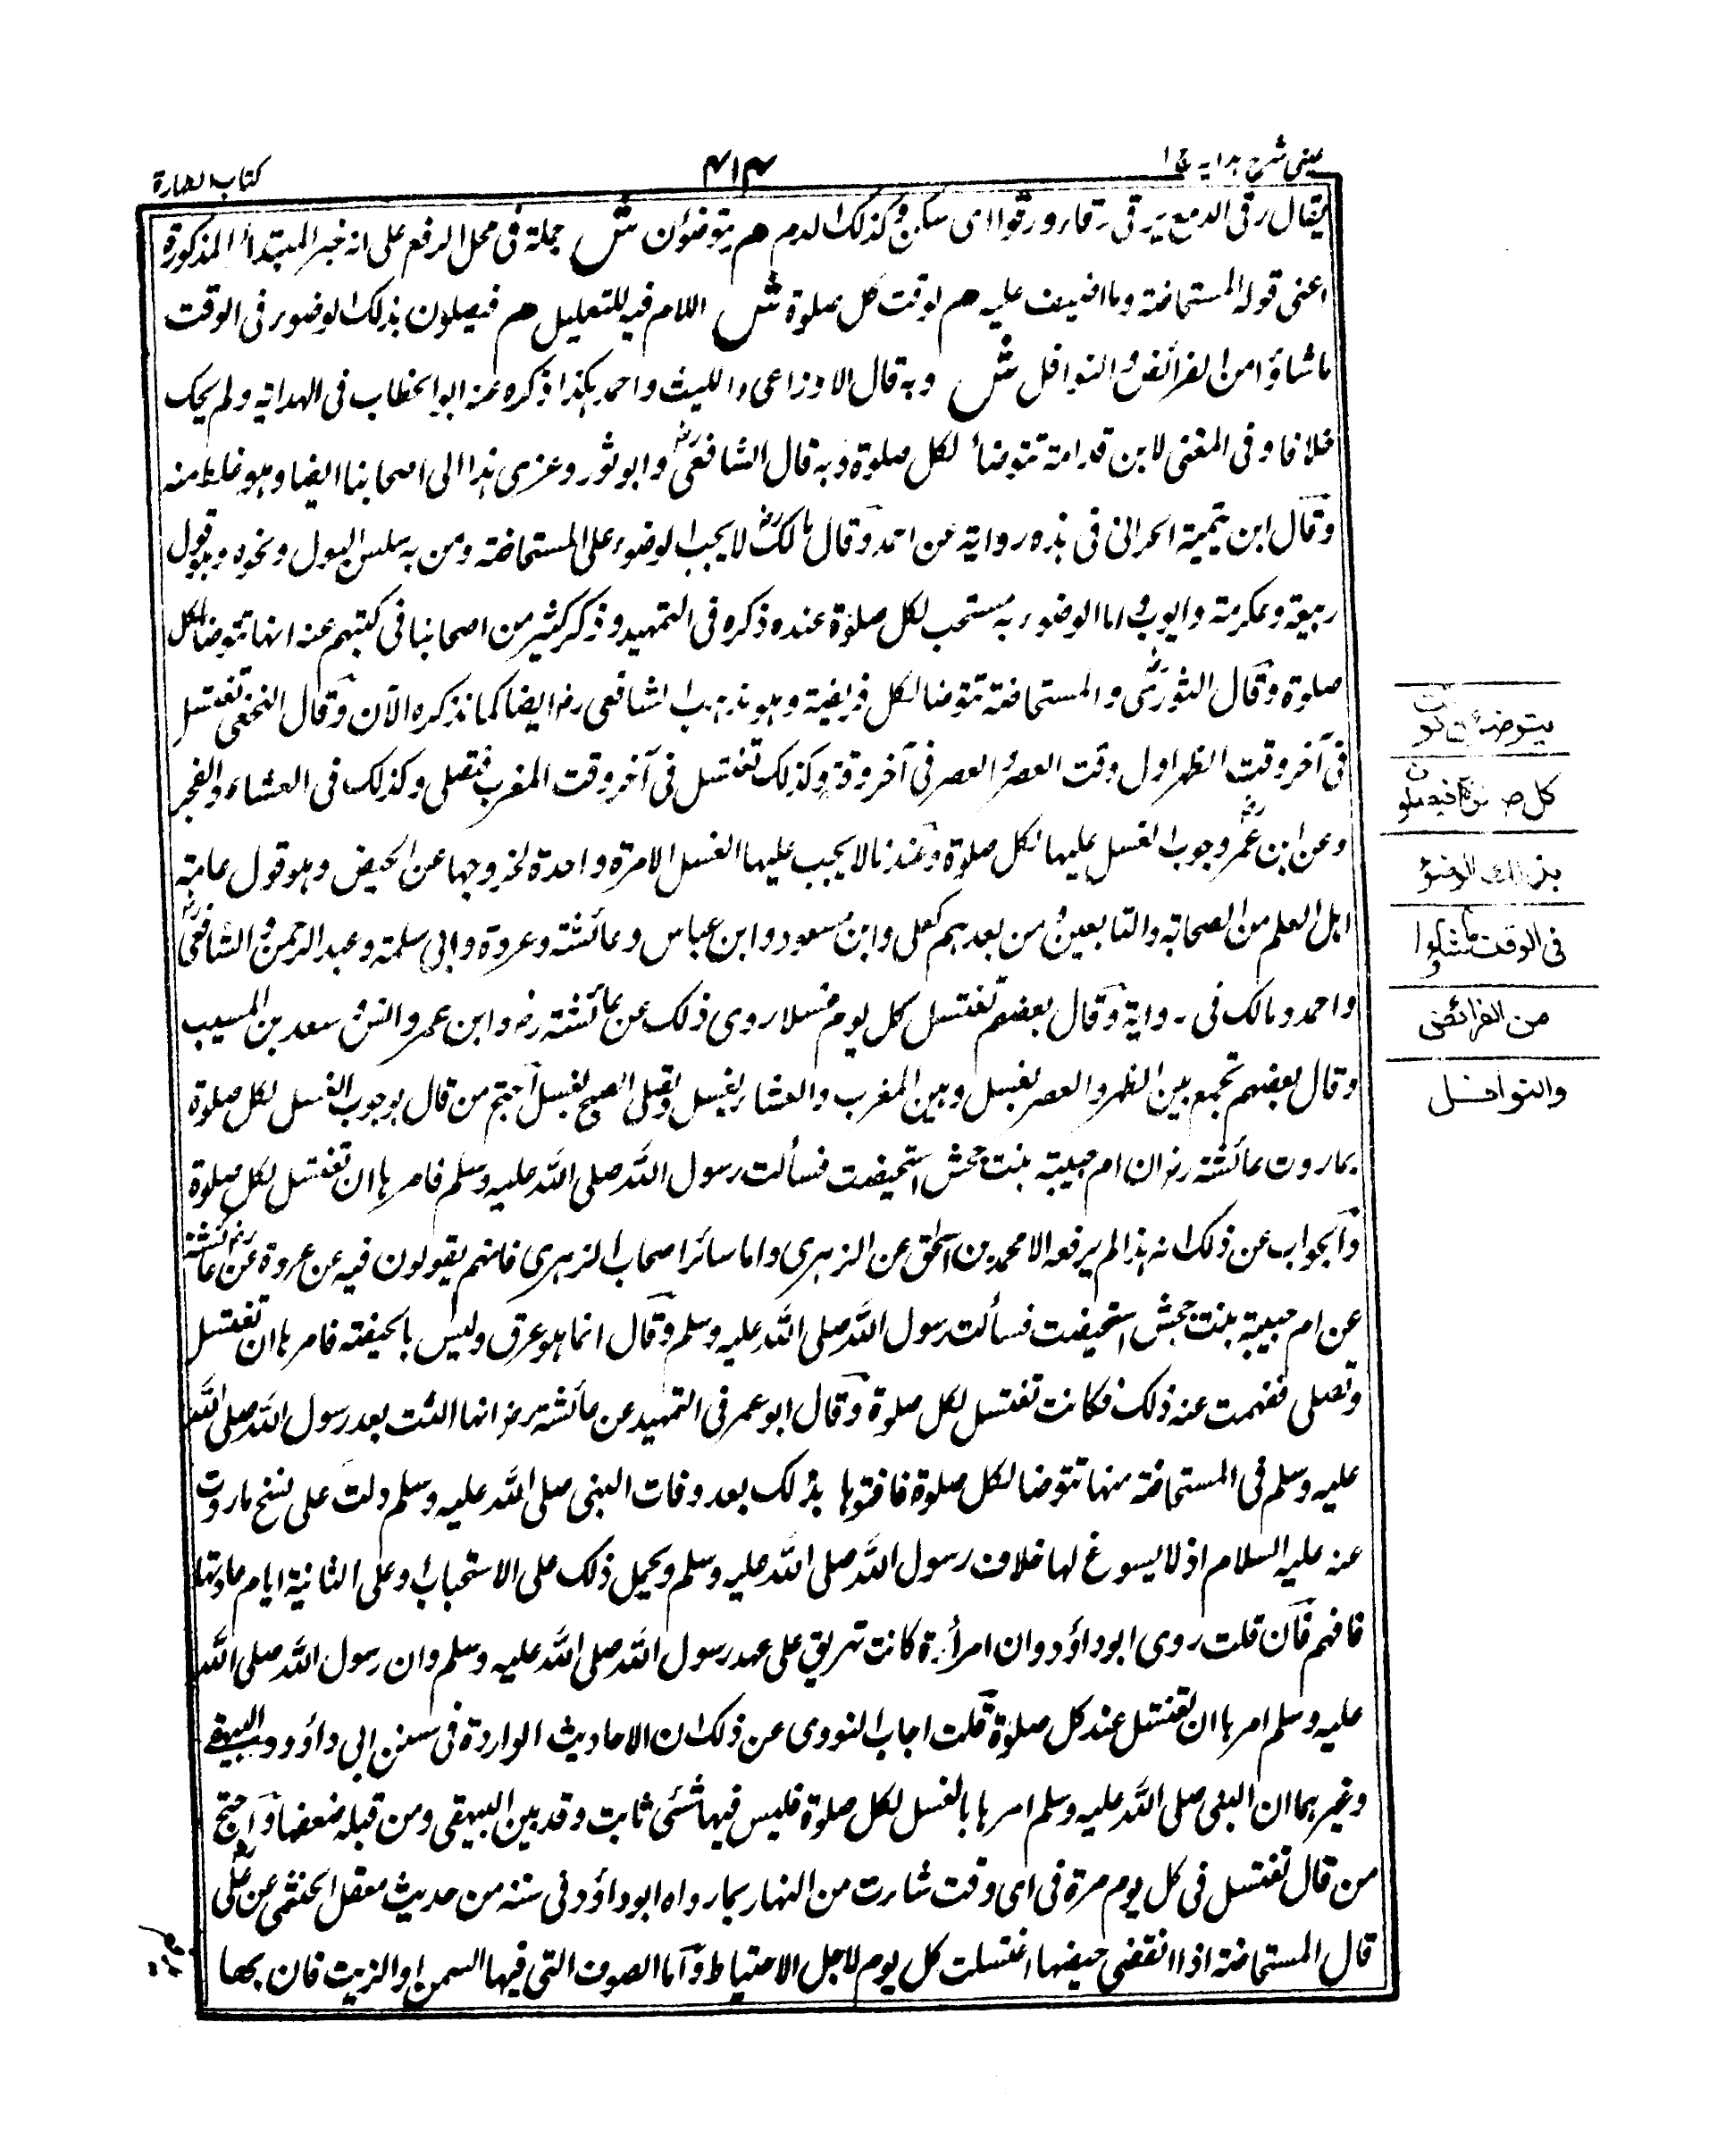 عینی شرح ہدایہ ج ۱
۴۱۴
کتاب الطہارة
یقال رقی الدمع یرقی رقاء ورقوا ای سکن وکذلک الدم هم یتوضؤن ش جملة فی محل الرفع علی انہ خبر المبتدأ المذکورة
اعنی قولہ المستحاضة وما اضیف علیہ هم لوقت کل صلوة ش اللام فیہ للتعلیل هم فیصلون بذلک الوضوء فی الوقت
ما شاؤا من الفرائض والنوافل ش وبہ قال الاوزاعی واللیث واحمد ہکذا ذکرہ عنہ ابو الخطاب فی الہدایہ ولم یحک
خلافا وفی المغنی لابن قدامة تتوضأ لکل صلوة وبہ قال الشافعی رض وابو ثور وعزی ہذا الی اصحابنا ایضا وہو غلط منہ
وقال ابن تیمیة الحرانی فی ہذہ روایة عن احمد وقال مالک رض لا یجب الوضوء علی المستحاضة ومن بہ سلس البول ونحوہ وہو قول
ربیعة وعکرمة وایوب واما الوضوء بہ مستحب لکل صلوة عندہ ذکرہ فی التمہید وذکر کثیر من اصحابنا فی کتبہم عنہ انہا تتوضا لکل
صلوة وقال الثوری رض والمستحاضة تتوضا لکل فریضة وہو مذہب الشافعی رض ایضا کما نذکرہ الآن وقال النخعی تغتسل
فی آخر وقت الظہر اول وقت العصر والعصر فی آخر وقتہ وکذلک تغتسل فی آخر وقت المغرب فتصلی وکذلک فی العشاء والفجر
وعن ابن عمر رض وجوب الغسل علیہا لکل صلوة وعندنا لا یجب علیہا الغسل الا مرة واحدة لخروجہا عن الحیض وہو قول عامة
اہل العلم من الصحابة والتابعین ومن بعدہم کعلی وابن مسعود وابن عباس وعائشة وعروة وابی سلمة وعبد الرحمن والشافعی رض
واحمد ومالک فی روایة وقال بعضہم تغتسل کل یوم غسلا روی ذلک عن عائشة رض وابن عمر وانس وسعد بن المسیب
وقال بعضہم تجمع بین الظہر والعصر بغسل وبین المغرب والعشاء بغسل وتصلی الصبح بغسل احتج من قال بوجوب الغسل لکل صلوة
بما روت عائشة رض ان ام حبیبة بنت جحش استحیضت فسألت رسول اللہ صلی اللہ علیہ وسلم فامرہا ان تغتسل لکل صلوة
والجواب عن ذلک انہ ہذا لم یرفعہ الا محمد بن اسحق عن الزہری واما سائر اصحاب الزہری فانہم یقولون فیہ عن عروة عن عائشة رض
عن ام حبیبة بنت جحش استحیضت فسألت رسول اللہ صلی اللہ علیہ وسلم وقال انما ہو عرق ولیس بالحیضة فامرہا ان تغتسل
وتصلی ففہمت عنہ ذلک فکانت تغتسل لکل صلوة وقال ابو عمر فی التمہید عن عائشة رض انہا افتت بعد رسول اللہ صلی اللہ
علیہ وسلم فی المستحاضة منہا تتوضا لکل صلوة فافتوہا بذلک بعد وفات النبی صلی اللہ علیہ وسلم دلت علی نسخ ما روت
عنہ علیہ السلام اذ لا یسوغ لہا خلاف رسول اللہ صلی اللہ علیہ وسلم ویحمل ذلک علی الاستحباب وعلی الثانیة ایام عادتہا
فافہم فان قلت روی ابو داؤد وان امرأة کانت تہریق علی عہد رسول اللہ صلی اللہ علیہ وسلم وان رسول اللہ صلی اللہ
علیہ وسلم امرہا ان تغتسل عند کل صلوة قلت اجاب النووی عن ذلک ان الاحادیث الواردة فی سنن ابی داؤد والبیہقی
وغیرہما ان النبی صلی اللہ علیہ وسلم امرہا بالغسل لکل صلوة فلیس فیہا شئی ثابت وقد بین البیہقی ومن قبلہ ضعفہا واحتج
من قال تغتسل فی کل یوم مرة فی ای وقت شاءت من النہار بما رواہ ابو داؤد فی سننہ من حدیث معقل الخثعمی عن علی رض
قال المستحاضة اذا انقضی حیضہا اغتسلت کل یوم لاجل الاحتیاط واما الصوف التی فیہا السمن او الزیت فان بھا
یتوضئون لو
کل صلوة فیصلون
بذلک الوضوء
فی الوقت ما شاؤا
من الفرائض
والنوافل